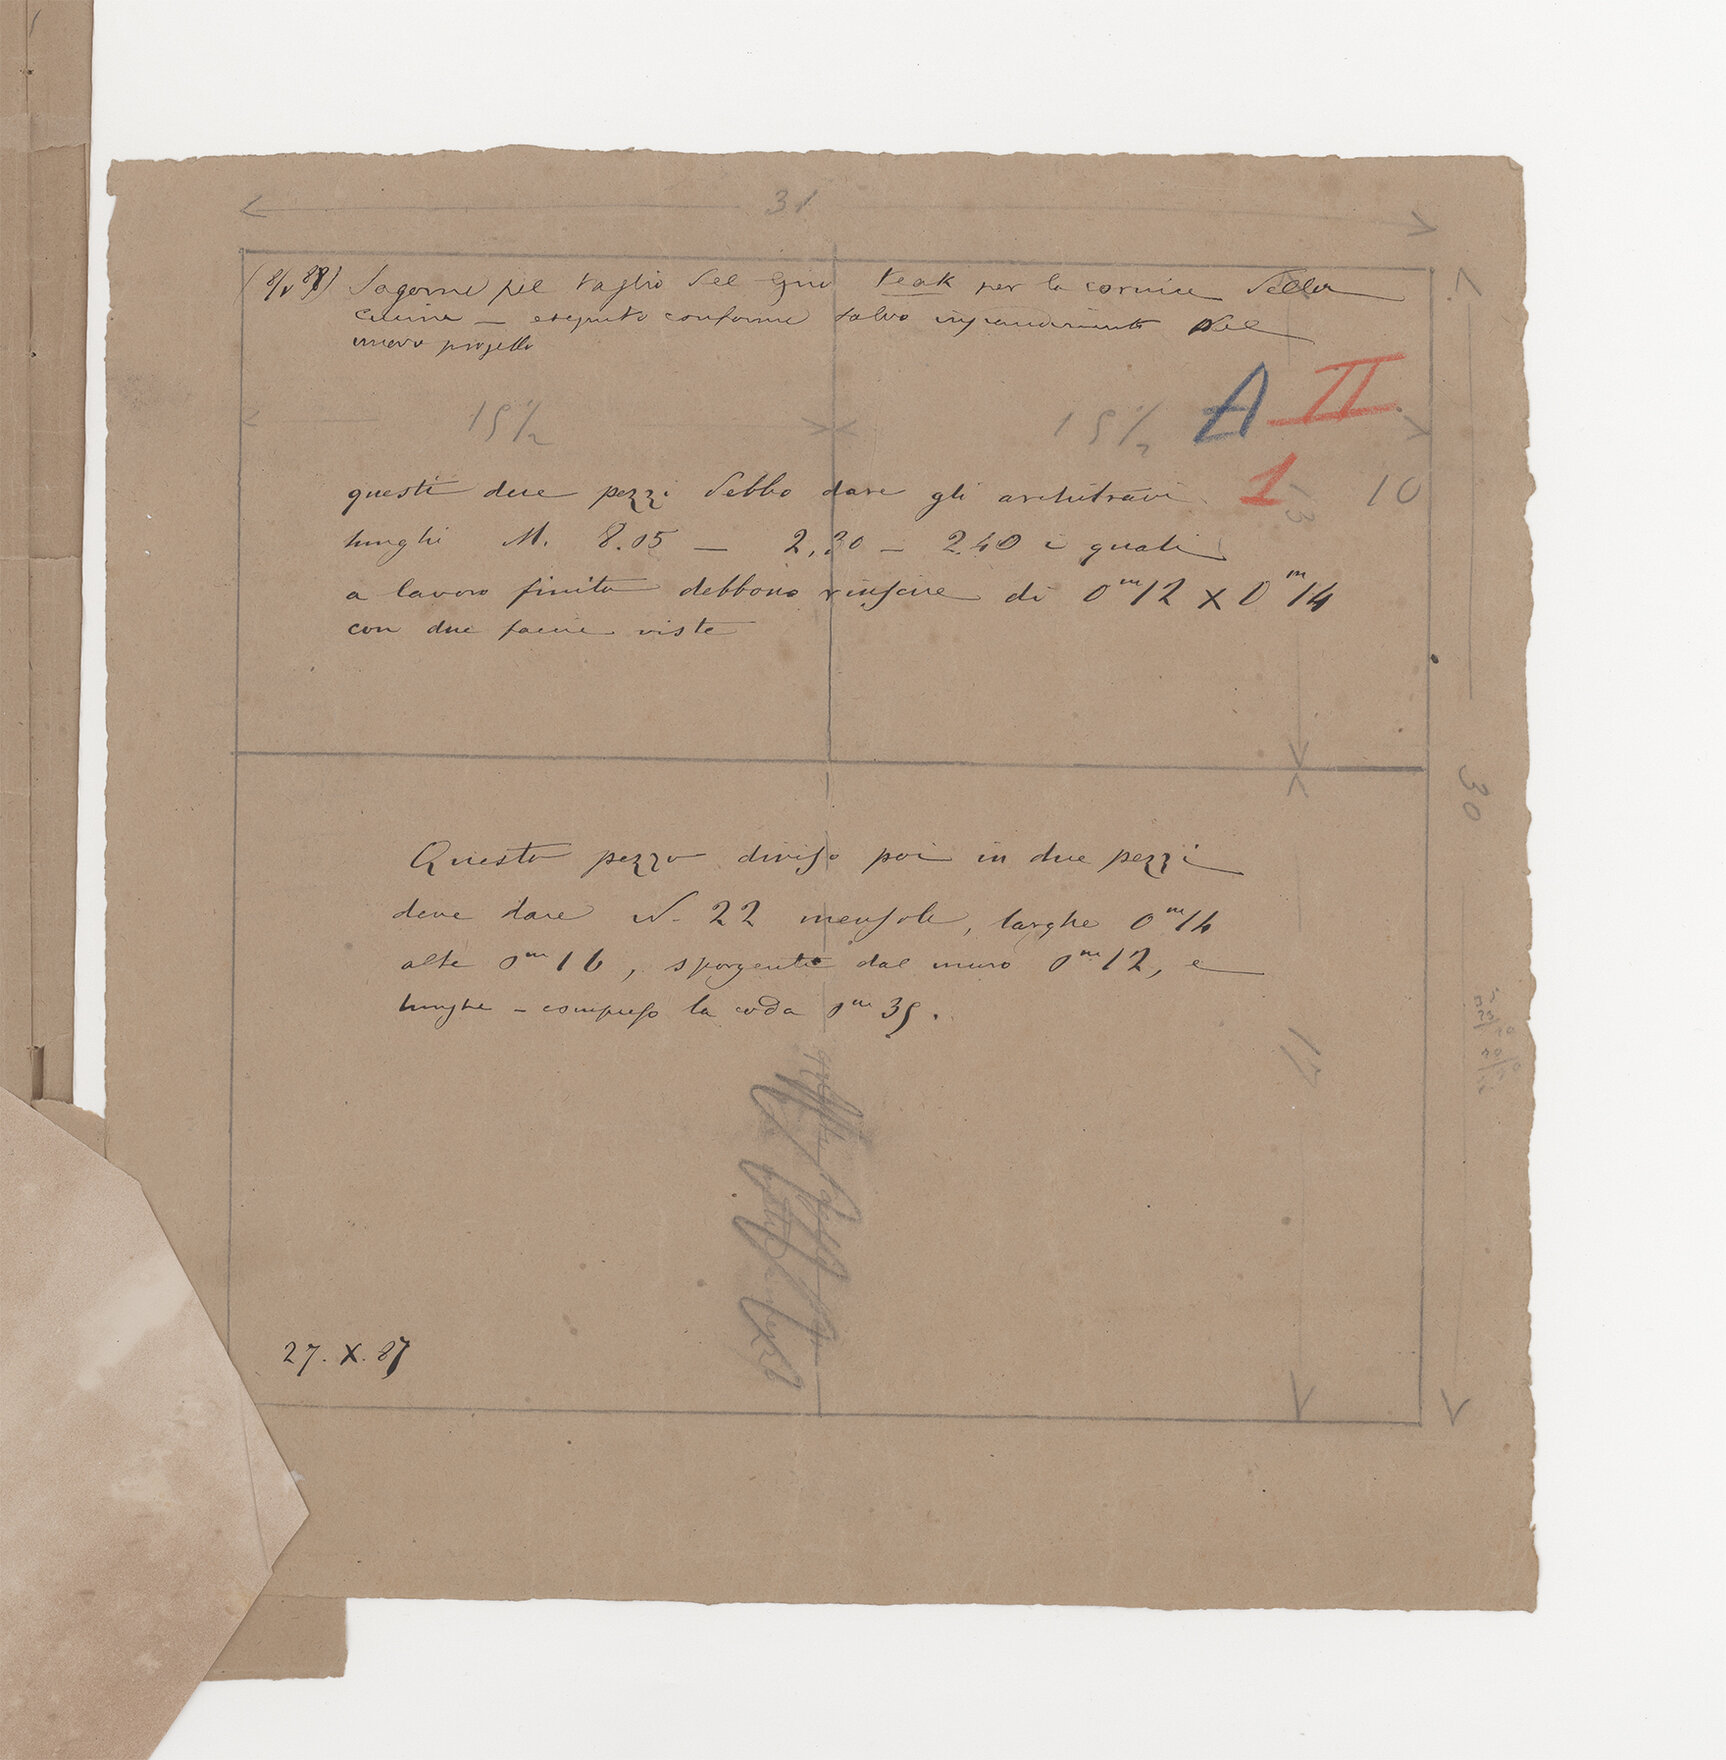 31
Sagome pel taglio del teak per la cornice della
cucina — eseguito conforme salvo ingrandimento del
nuovo progetto
A II
15 1/2 15 1/2
questi due pezzi debbo dare gli architravi 1 13 10
lunghi M. 8.05 — 2,30 — 2.40 i quali
a lavoro finito debbono riuscire di 0m12 x 0m14
con due faccie viste
30
Questo pezzo diviso poi in due pezzi
deve dare N. 22 mensole, larghe 0m14
alte 0m16, sporgenti dal muro 0m12, e
lunghe – compreso la coda 0m35.
17
27. X. 87